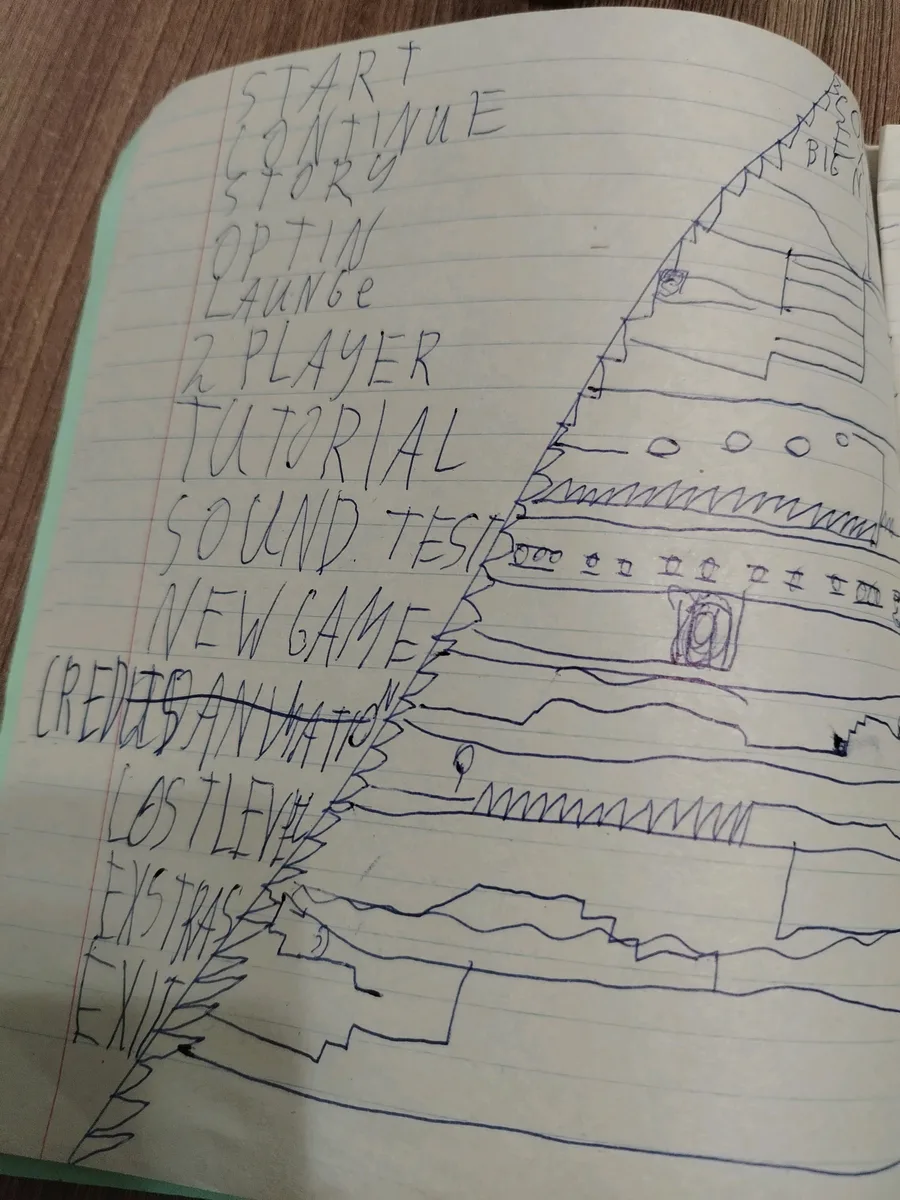 START
CONTINUE
STORY
OPTIN
LAUNGe
2 PLAYER
TUTORIAL
SOUND. TEST
NEW GAME
CREDITS ANIMATION
LOST LEVEL
EXSTRAS
EXIT
BIG